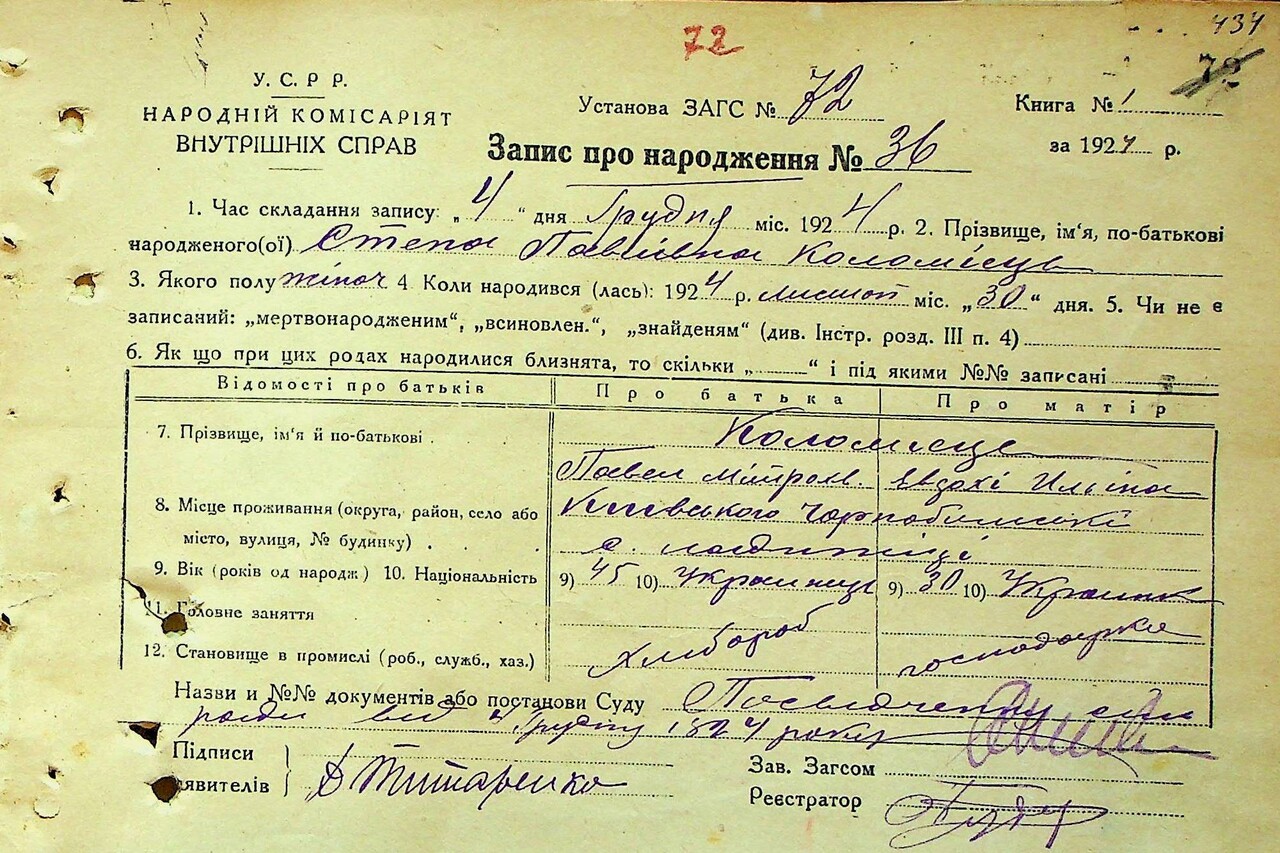 434
72
72
У. С. Р Р.
НАРОДНІЙ КОМІСАРІЯТ
ВНУТРІШНІХ СПРАВ
Установа ЗАГС № 72
Книга № 1
за 1924 р.
Запис про народження № 36
1. Час складання запису: „4“ дня Грудня міс. 1924 р. 2. Прізвище, ім'я, по-батькові
народженого(ої) Степа Павлівна Коломієць
3. Якого полу жіноч 4 Коли народився (лась): 1924 р. листоп міс. „30“ дня. 5. Чи не є
записаний: „мертвонародженим“, „всиновлен.“, „знайденям“ (див. Інстр. розд. III п. 4)
6. Як що при цих родах народилися близнята, то скільки „ “ і під якими №№ записані
Відомості про батьків Про батька Про матір
7. Прізвище, ім'я й по-батькові . Коломієць
Павел Митроф.
8. Місце проживання (округа, район, село або Київського
місто, вулиця, № будинку) . с.
9. Вік (років од народж) 10. Національність 9) 45 10) Украинець 9) 30 10) Украинк
11. Головне заняття
12. Становище в промислі (роб., служб., хаз.) хлібороб господарка
Назви и №№ документів або постанови Суду Посвідчення сіль
ради від 4 Грудня 1924 року
Підписи
заявителів Титаренко
Зав. Загсом
Реєстратор